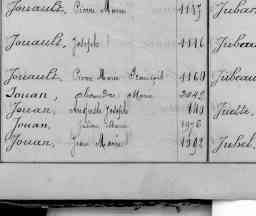 Jouault, Pierre Marie 1187 Jubar
Jouault, Joseph 1116 Jubeau
Jouault, Pierre Marie François 1160 Jubeau
Jouan, Marie 2042
Jouan, Auguste Joseph Juette,
Jouan, Marie 1976
Jouan, Jean Marie 1992 Juhel,